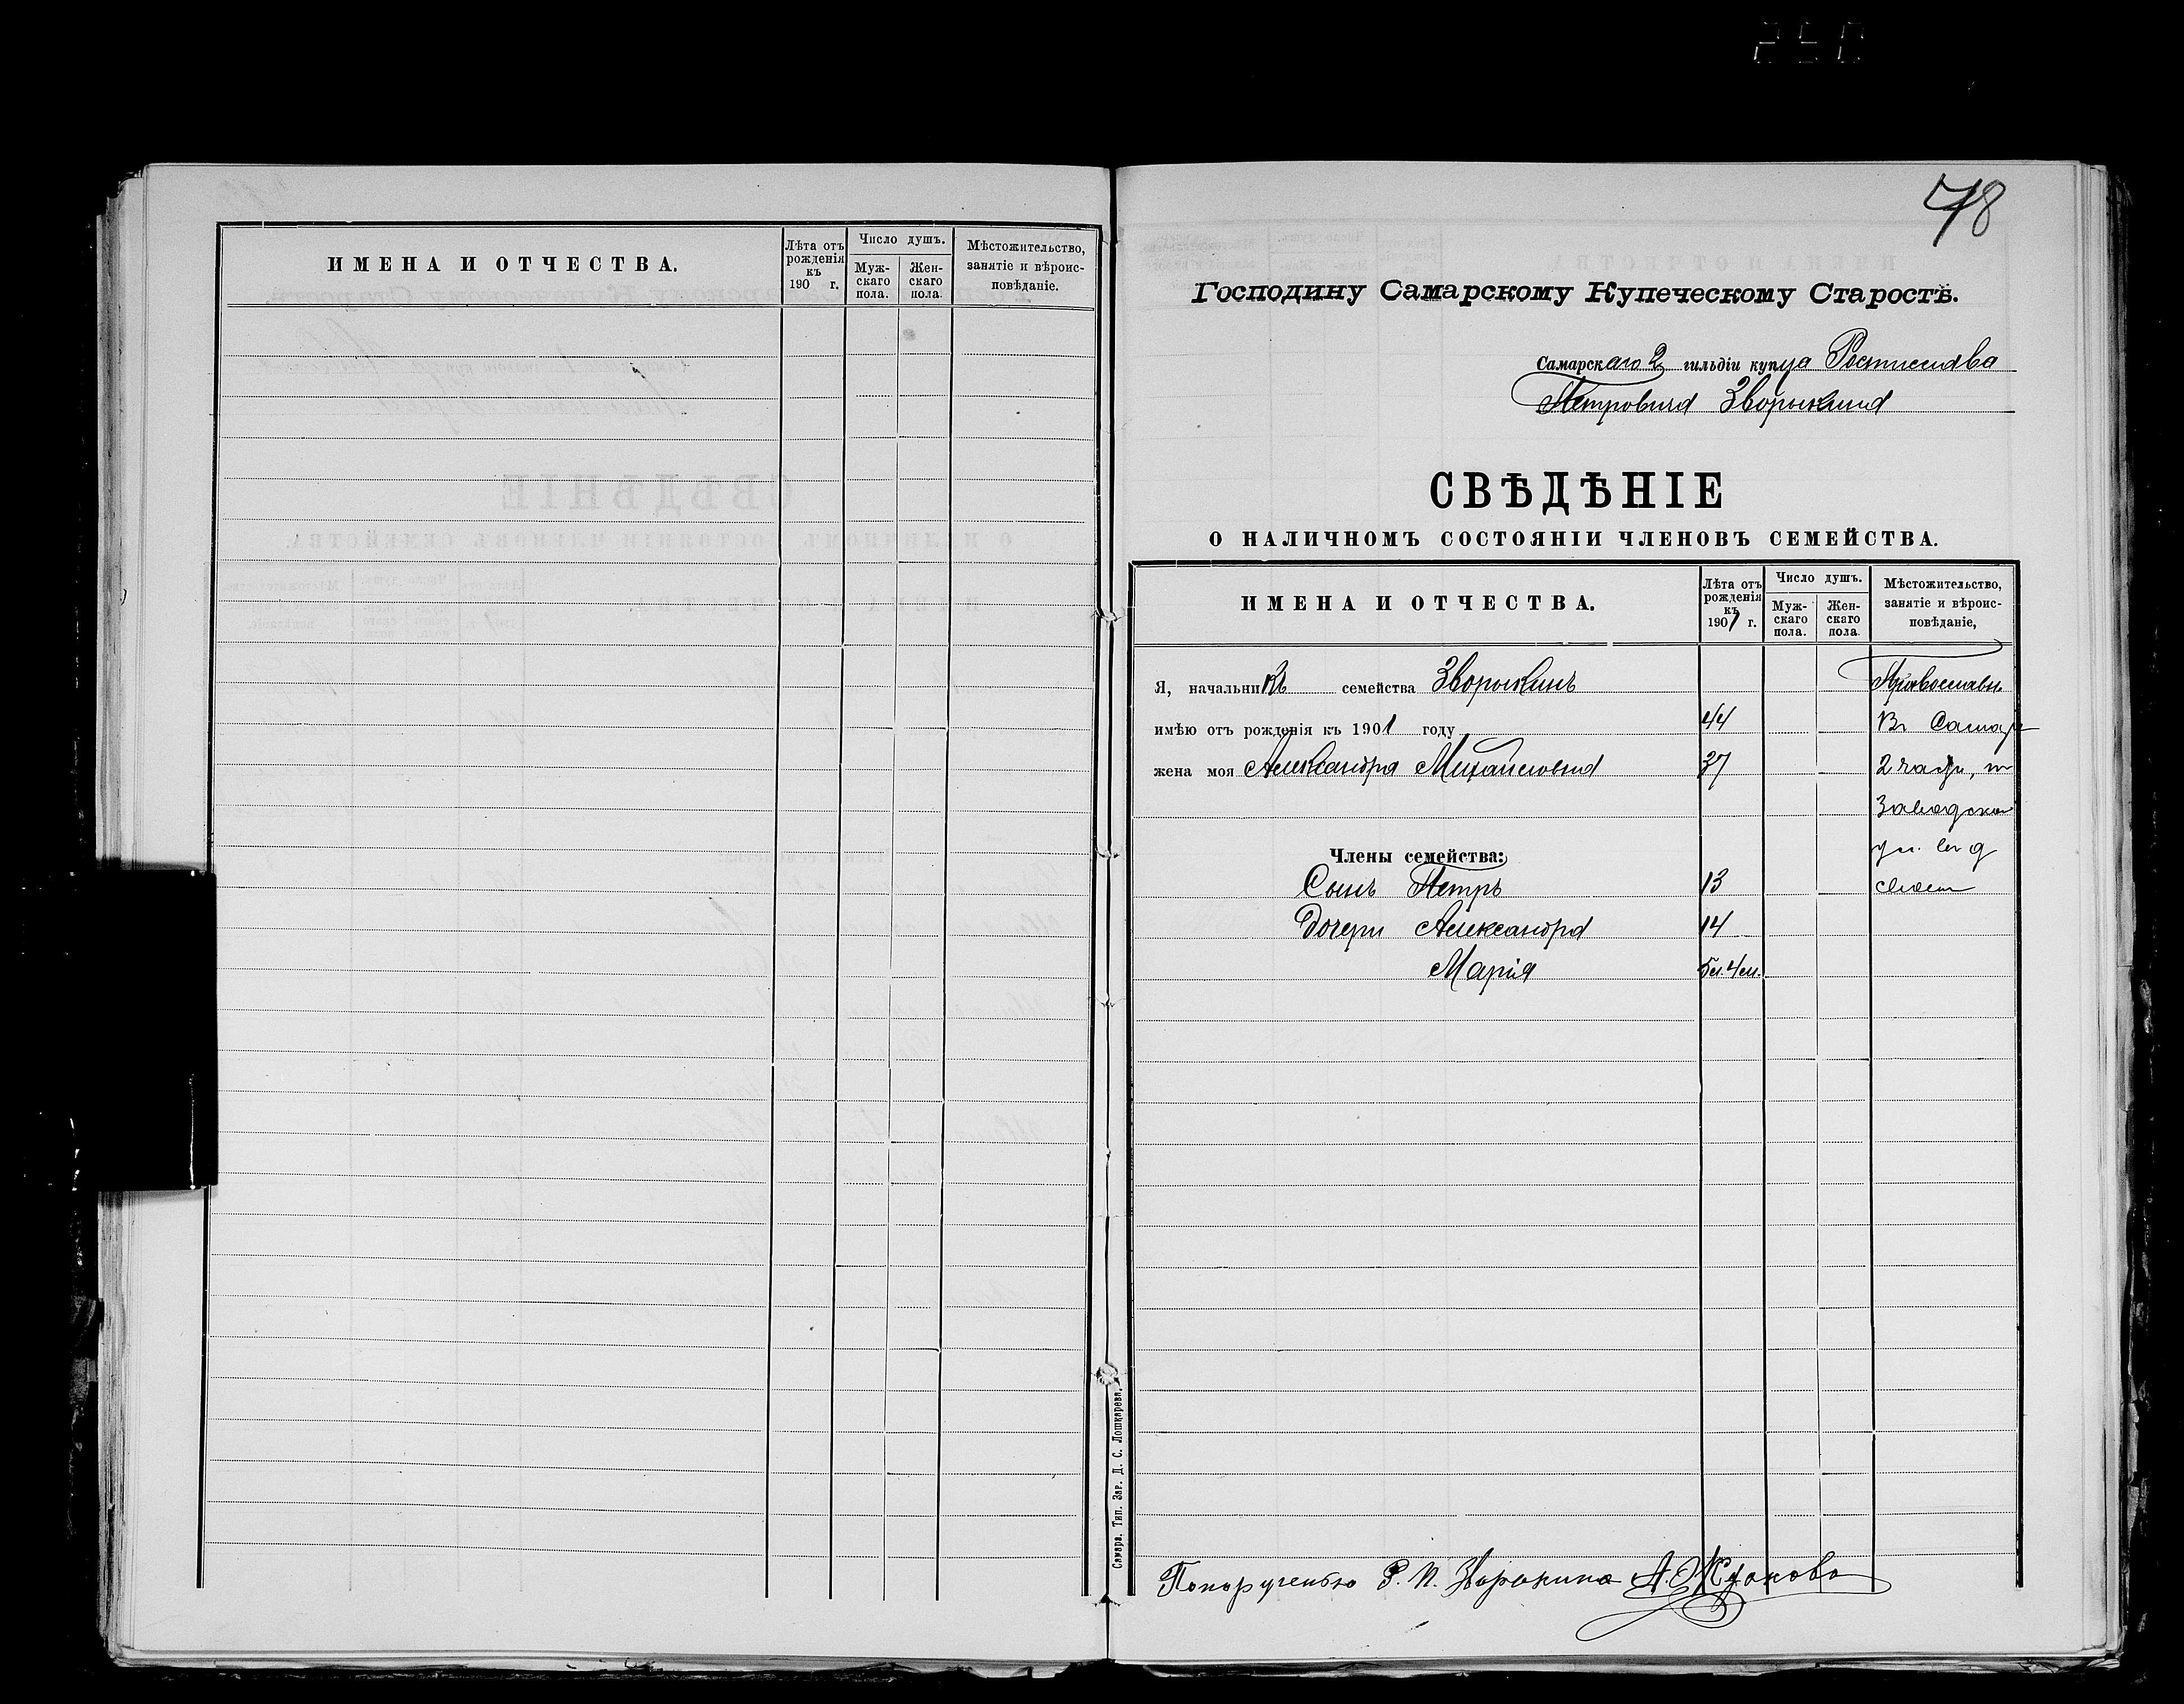 ИМЕНА И ОТЧЕСТВА.
Лѣта отъ рожденія къ 190 г.
Число душъ.
Муж-скаго пола.
Жен-скаго пола.
Мѣстожительство, занятіе и вѣроис-повѣданіе.
78
Господину Самарскому Купеческому Старостѣ.
Самарскаго 2 гильдіи купца Ростислава
Петровича Зворыкина
СВѢДѢНІЕ
О НАЛИЧНОМЪ СОСТОЯНІИ ЧЛЕНОВЪ СЕМЕЙСТВА.
ИМЕНА И ОТЧЕСТВА.
Лѣта отъ рожденія къ 1901 г.
Число душъ.
Муж-скаго пола.
Жен-скаго пола.
Мѣстожительство, занятіе и вѣроис-повѣданіе,
Я, начальникъ семейства Зворыкинъ Православн
имѣю отъ рожденія къ 1901 году 44 Въ Самарѣ
жена моя Александра Михайловна 37 2 части,
Заводская
Члены семейства: ул.
Сынъ Петръ 13 своем
Дочери Александра 14
Марія 5 л. 4 м.
По порученію Р. П. Зворыкина А.
Самара. Тип. Заг. Д. С. Лошкарева.